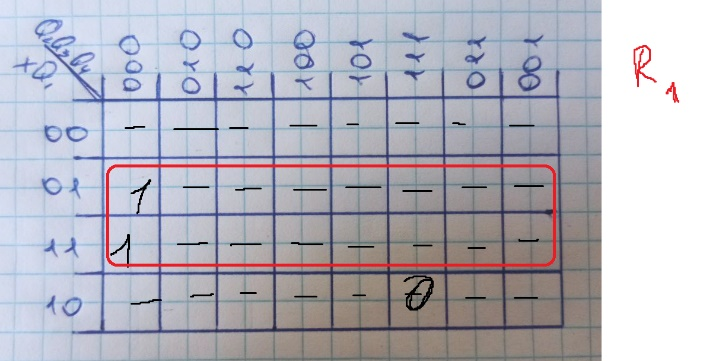 Q₂Q₃Q₄ 000 010 110 100 101 111 011 001
xQ₁
00 – – – – – – – –
01 1 – – – – – – –
11 1 – – – – – – –
10 – – – – – 0 – –
R₁